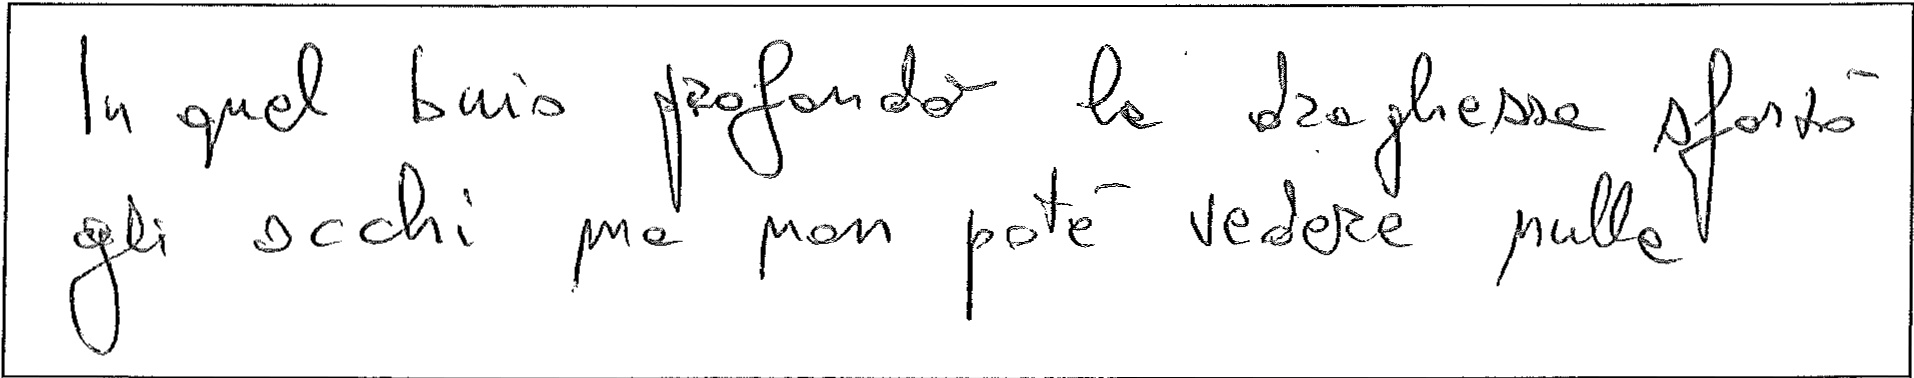 In quel buio profondò la draghessa sforzò
gli occhi ma non poté vedere nulla